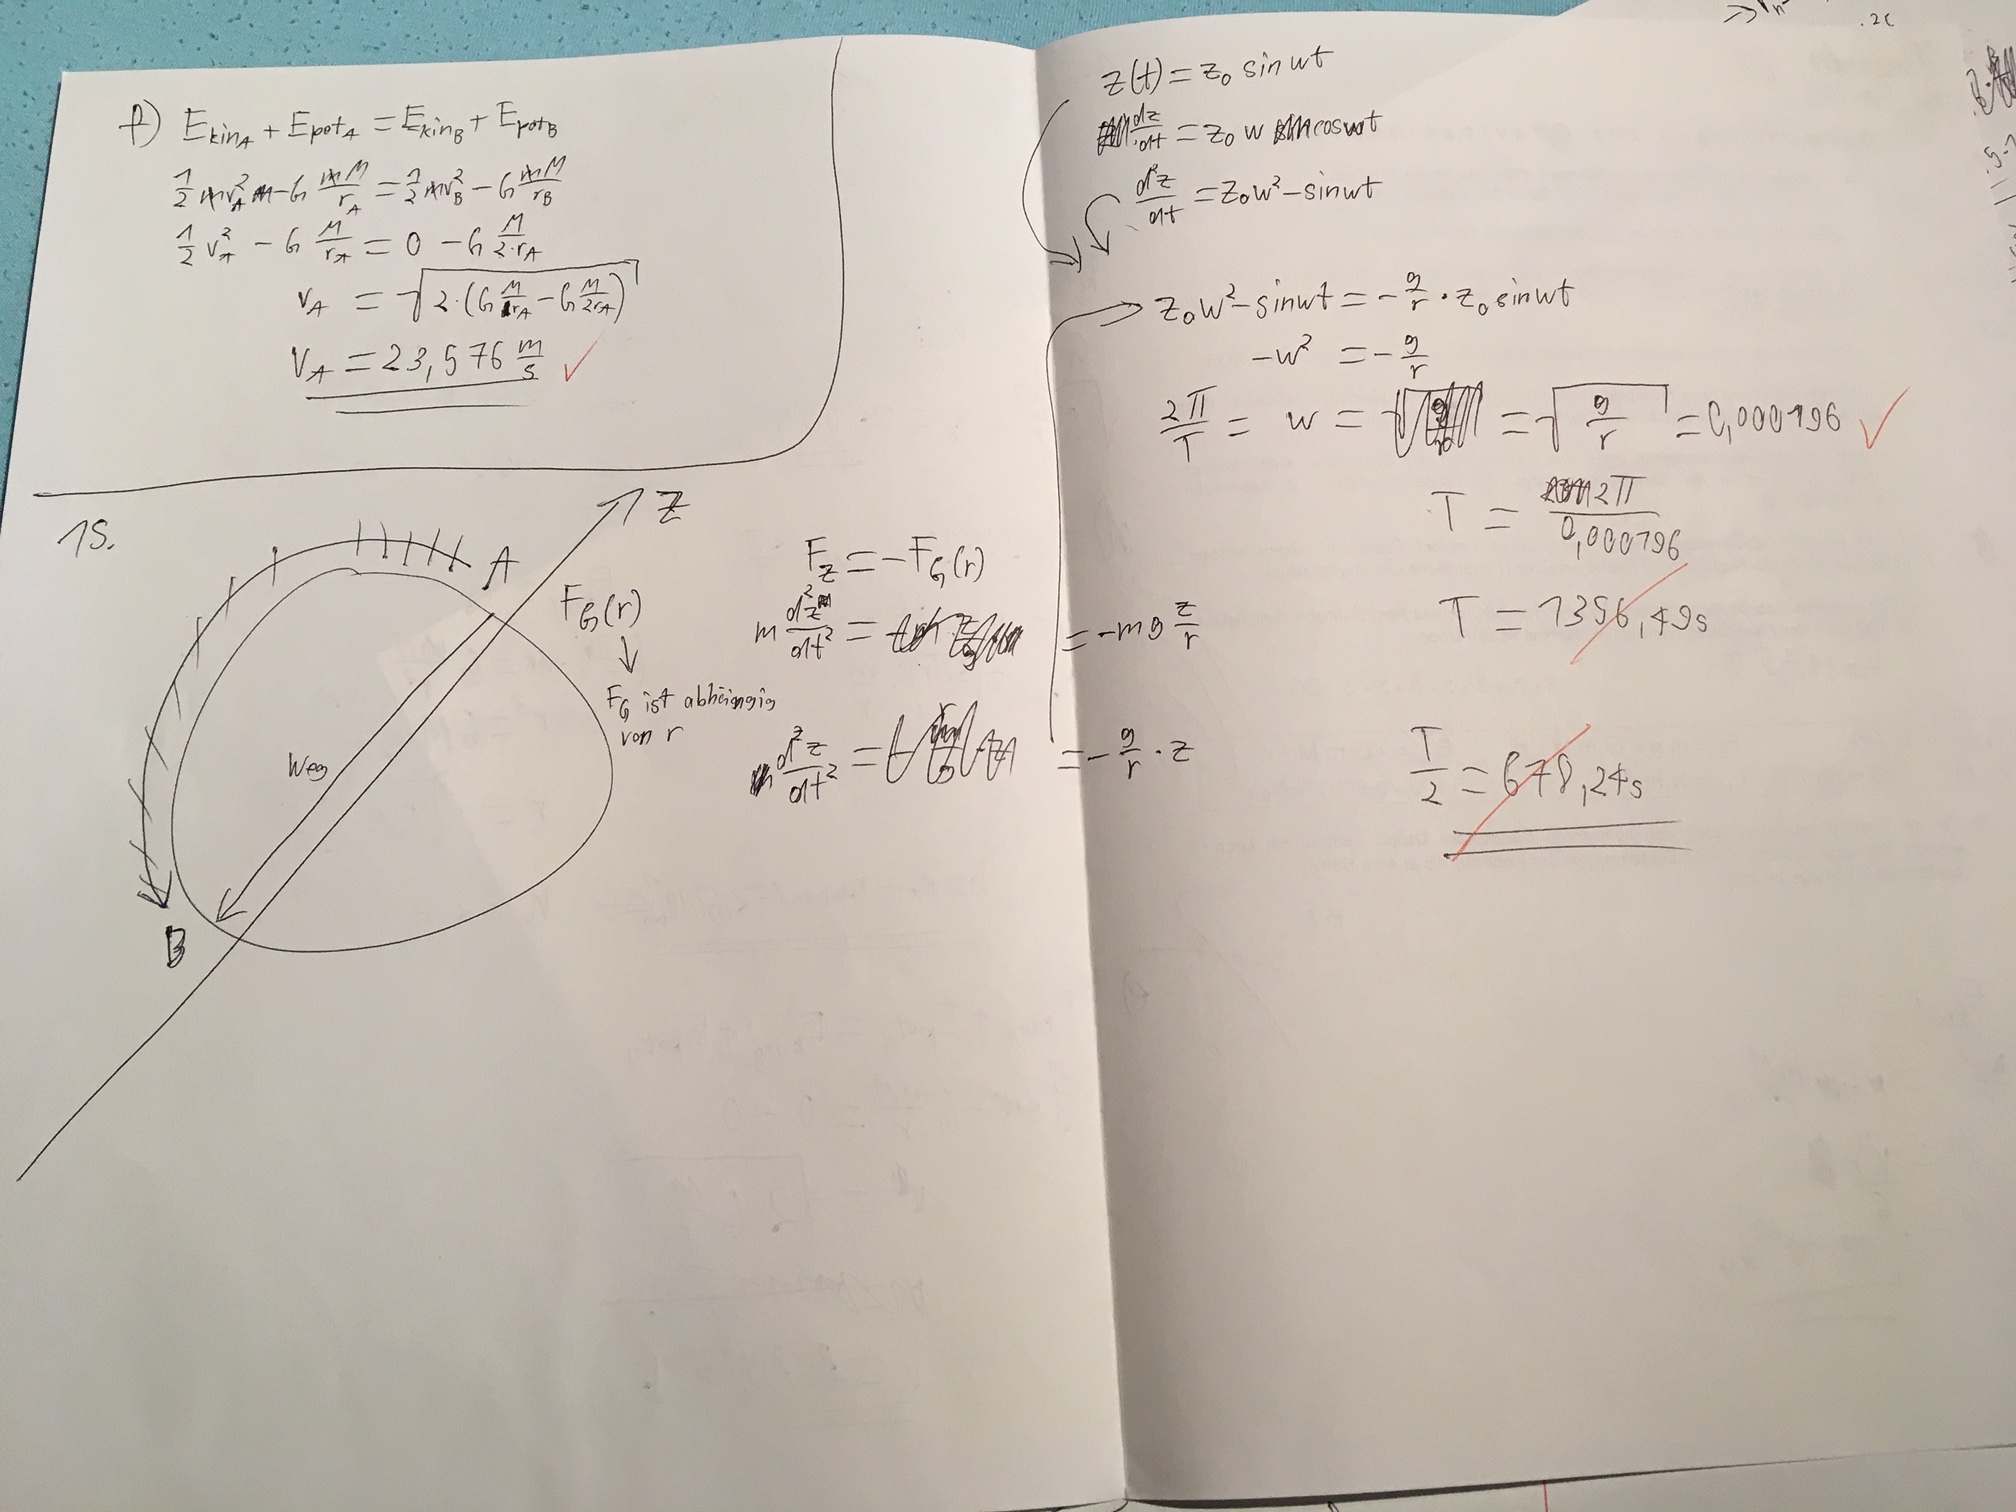 f) E_kin_A + E_pot_A = E_kin_B + E_pot_B
1/2 m v_A² - G mM/r_A = 1/2 m v_B² - G mM/r_B
1/2 v_A² - G M/r_A = 0 - G M/(2·r_A)
v_A = √(2·(G M/r_A - G M/(2r_A)))
v_A = 23,576 m/s ✓
15.
A
B
Weg
z
F_G(r)
↓
F_G ist abhängig
von r
F_z = -F_G(r)
m d²z/dt² = = -m g z/r
d²z/dt² = = - g/r · z
z(t) = z₀ sin wt
dz/dt = z₀ w cos wt
d²z/dt = z₀w² - sin wt
z₀w² - sin wt = - g/r · z₀ sin wt
-w² = - g/r
2π/T = w = = √(g/r) = 0,000196 ✓
T = 2π/0,000196
T = 1356,49s
T/2 = 678,24s